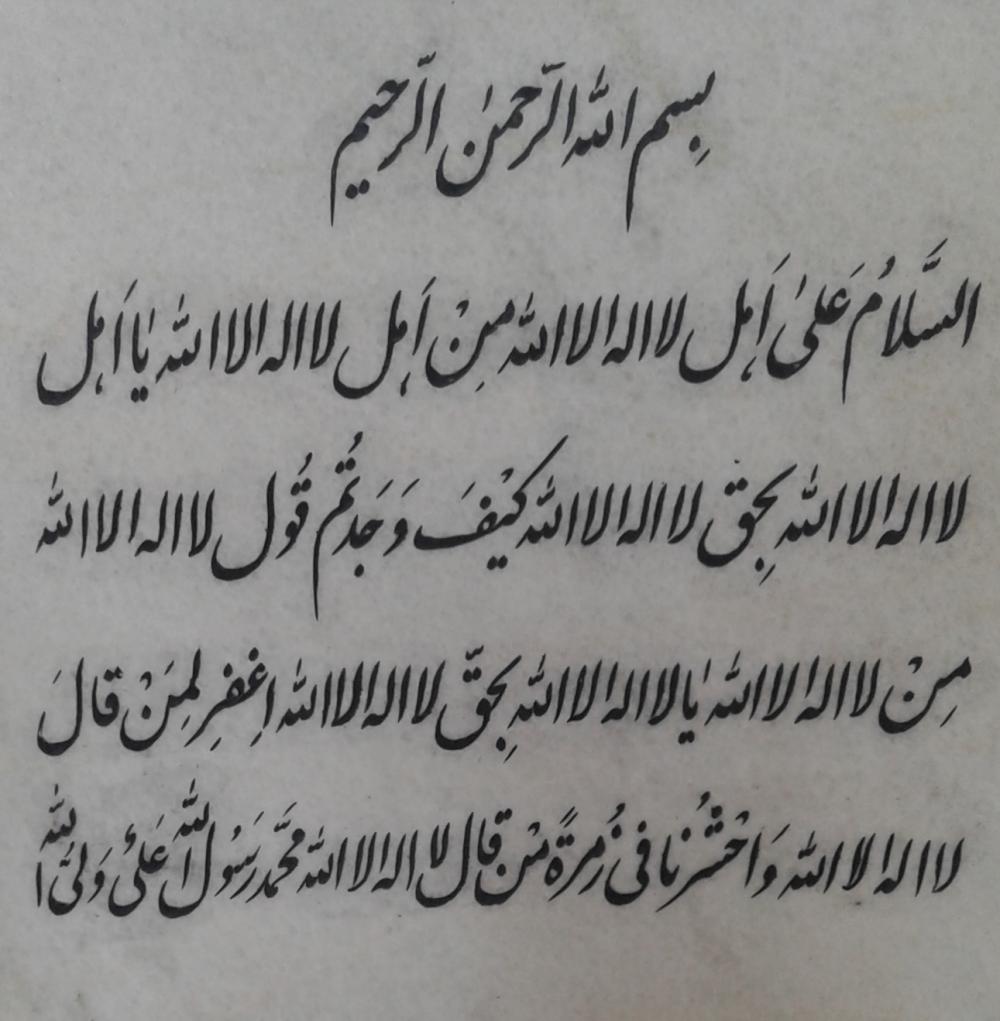 بِسم الله الرّحمٰن الرّحیم
السَّلامُ عَلیٰ اَهل لا اله الا الله مِنْ اَهل لا اله الا الله یٰا اَهل
لا اله الا الله بِحق لا اله الا الله کیْفَ وَجَدتُم قُول لا اله الا الله
مِنْ لا اله الا الله یٰا لا اله الا الله بِحقّ لا اله الا الله اِغفِر لِمَنْ قالَ
لا اله الا الله وَاحْشُرْنا فی زُمرَةً مْن قال لا اله الا الله محَّمد رَسُول الله عَلیُ وَلیَّ الله